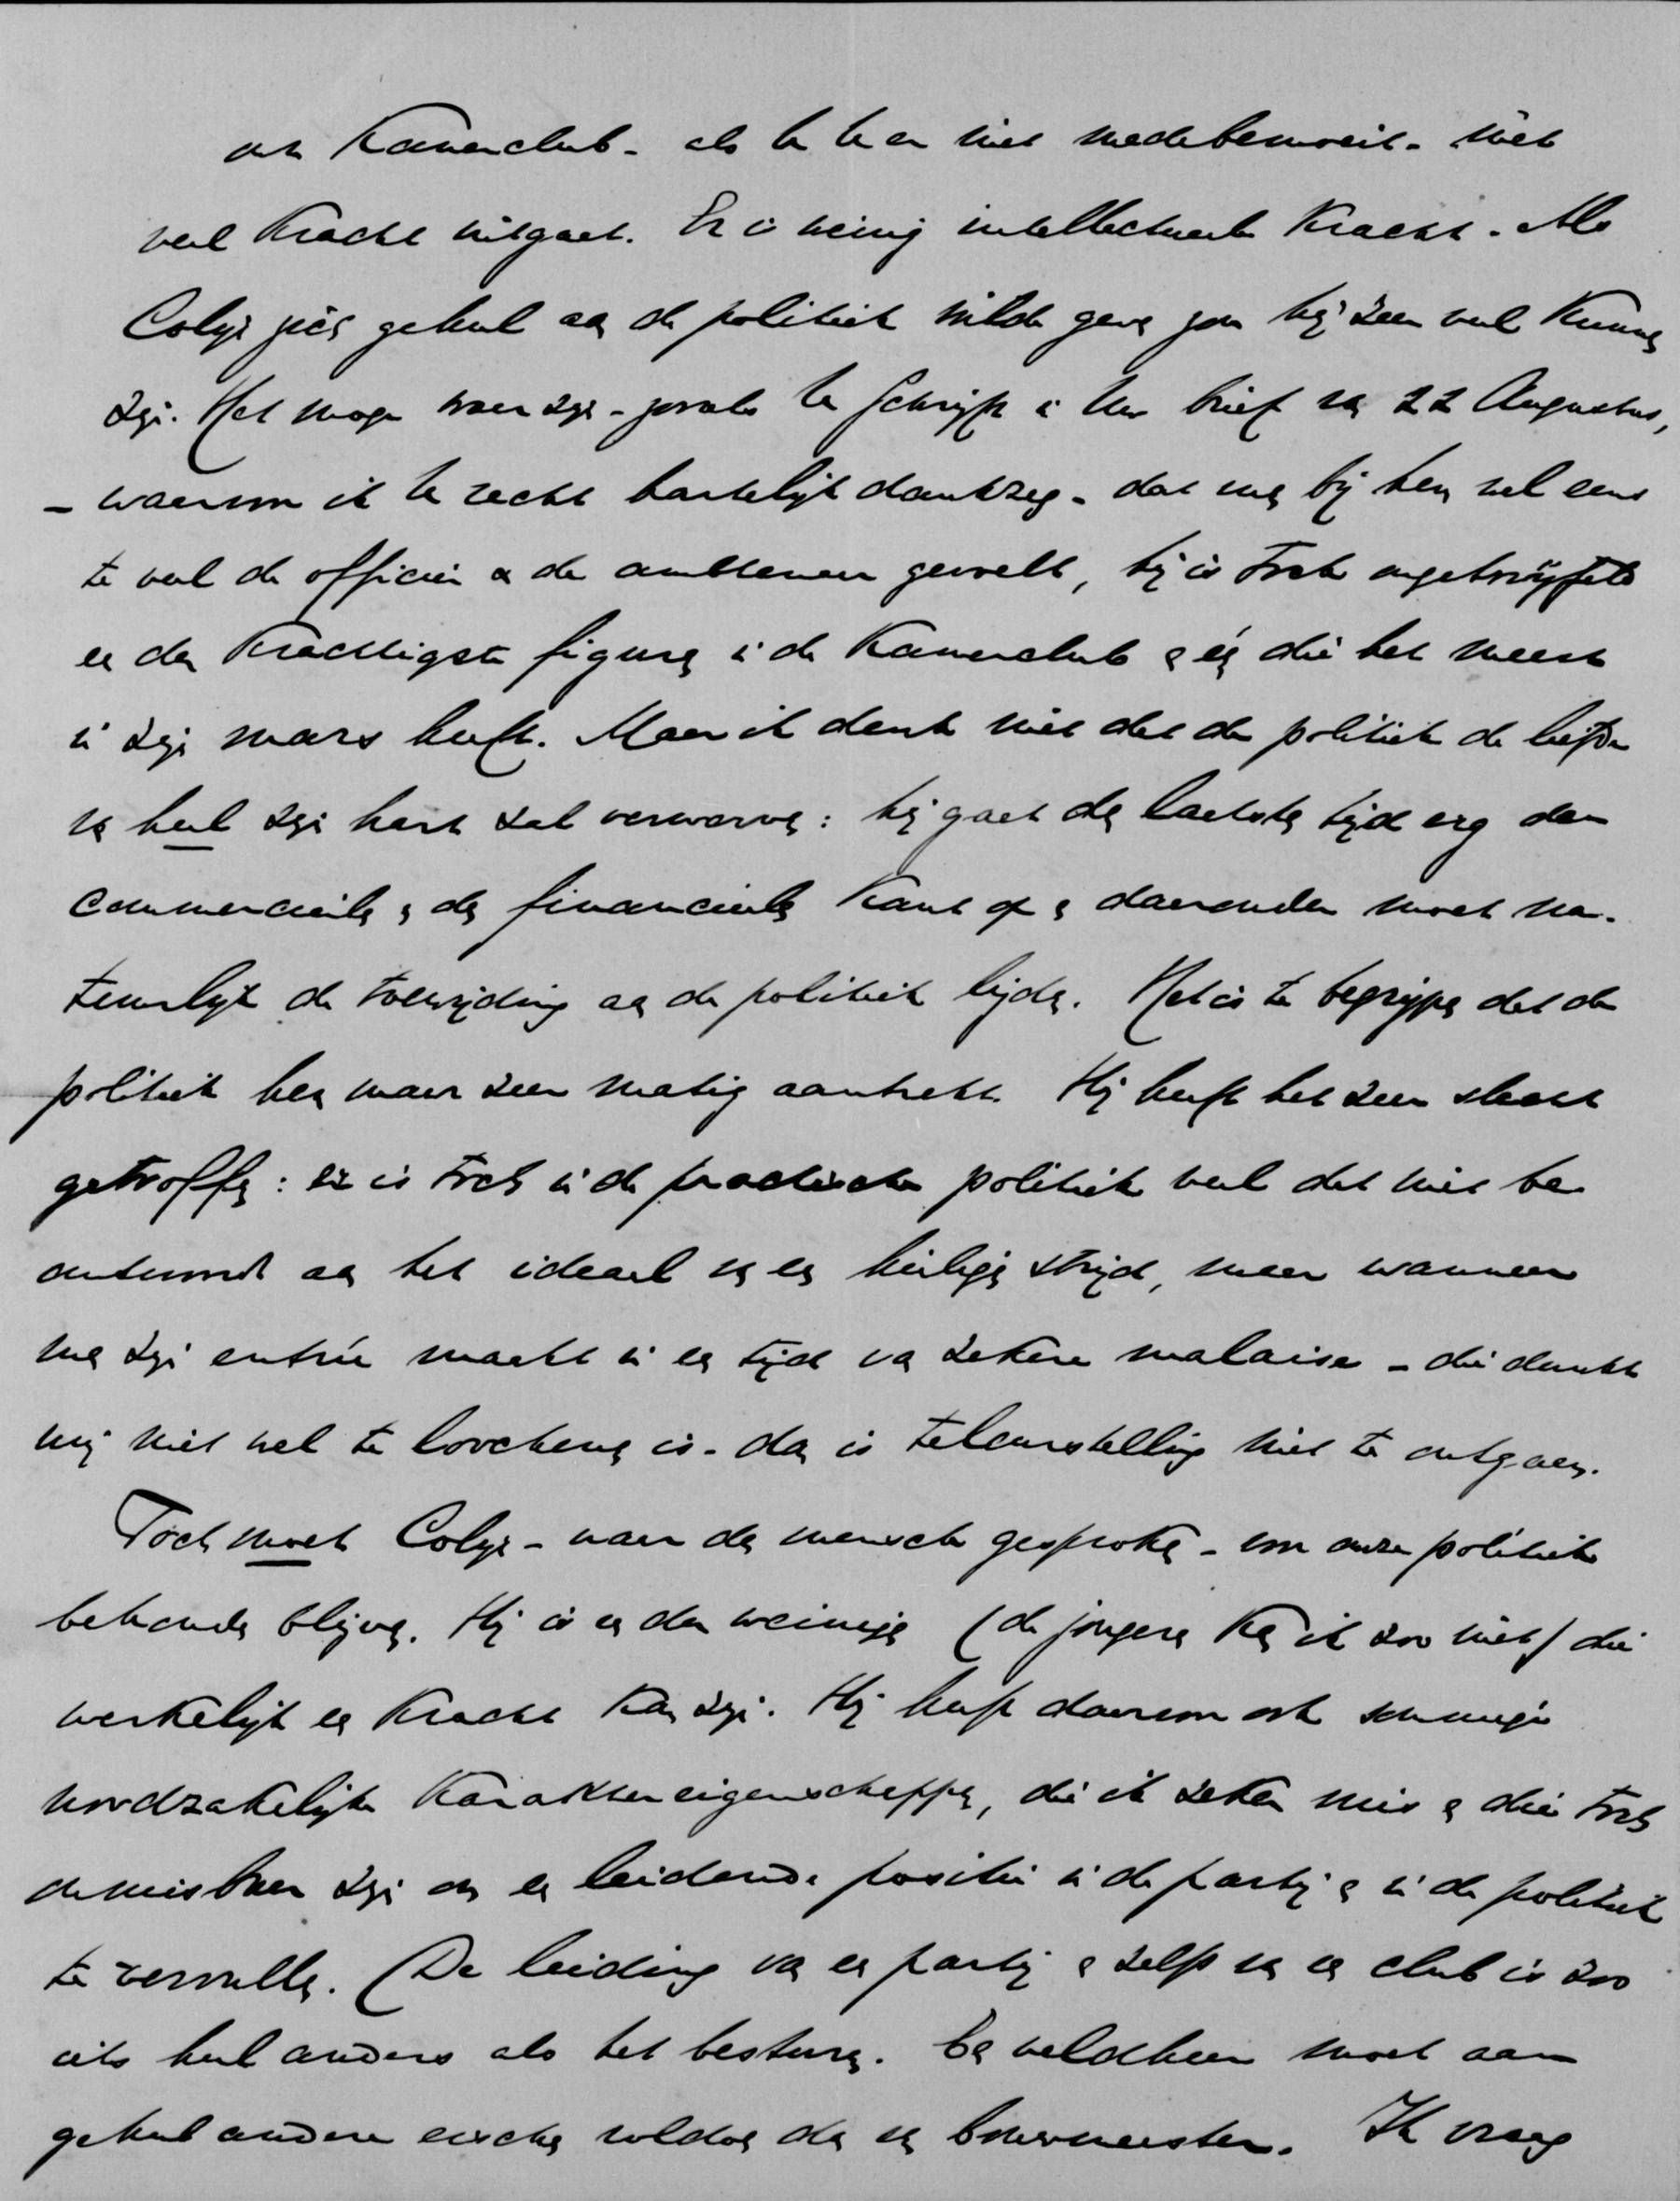 onze Kamerclub - als U U er niet mede bemoeit - niet
veel kracht uitgaat. Er is weinig intellectueele kracht. Als
Colijn zich geheel aan de politiek wilde geven zou hij zeer veel kunnen
zijn. Het moge waar zijn - zooals U schrijft in Uw brief van 22 Augustus,
- waarvoor ik U recht hartelijk dankzeg - dat men bij hem wel eens
te veel de officier en de ambtenaar gevoelt, hij is toch ongetwijfeld
een der krachtigste figuren in de Kamerclub en één die het meest
in zijn mars heeft. Maar ik denk niet dat de politiek de liefde
van heel zijn hart zal verwerven: hij gaat den laatsten tijd erg den
commercieelen en den financieelen kant op en daaronder moet na-
tuurlijk de toewijding aan de politiek lijden. Het is te begrijpen dat de
politiek hem maar zeer matig aantrekt. Hij heeft het zeer slecht
getroffen: er is toch in de practische politiek veel dat niet be-
antwoordt aan het ideaal van een heiligen strijd, maar wanneer
men zijn entrée maakt in een tijd van zekere malaise - die dunkt
mij niet wel te loochenen is - dan is teleurstelling niet te ontgaan.
Toch moet Colijn - naar den mensch gesproken - voor onze politiek
behouden blijven. Hij is een der weinigen (de jongeren ken ik zoo niet) die
werkelijk een kracht kan zijn. Hij heeft daarvoor ook sommige
noodzakelijke karaktereigenschappen, die ik zeker mis en die toch
onmisbaar zijn om een leidende positie in de partij en in de politiek
te vervullen. (De leiding van een partij en zelfs van een club is zoo
iets heel anders als het besturen. Een veldheer moet aan
geheel andere eischen voldoen dan een bouwmeester. Ik vraag